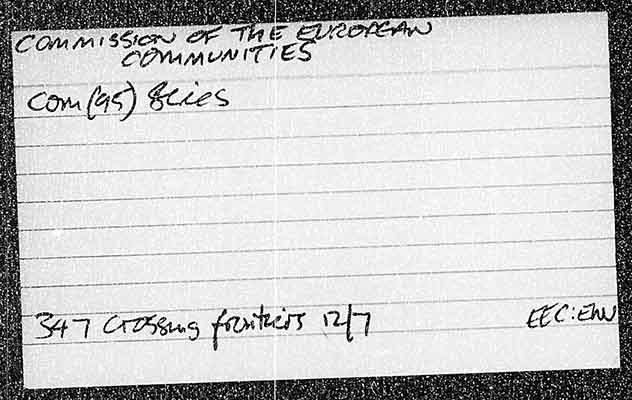 COMMISSION OF THE EUROPEAN
COMMUNITIES
COM(95) Series
347 Crossing frontiers 12/7
EEC:ENV